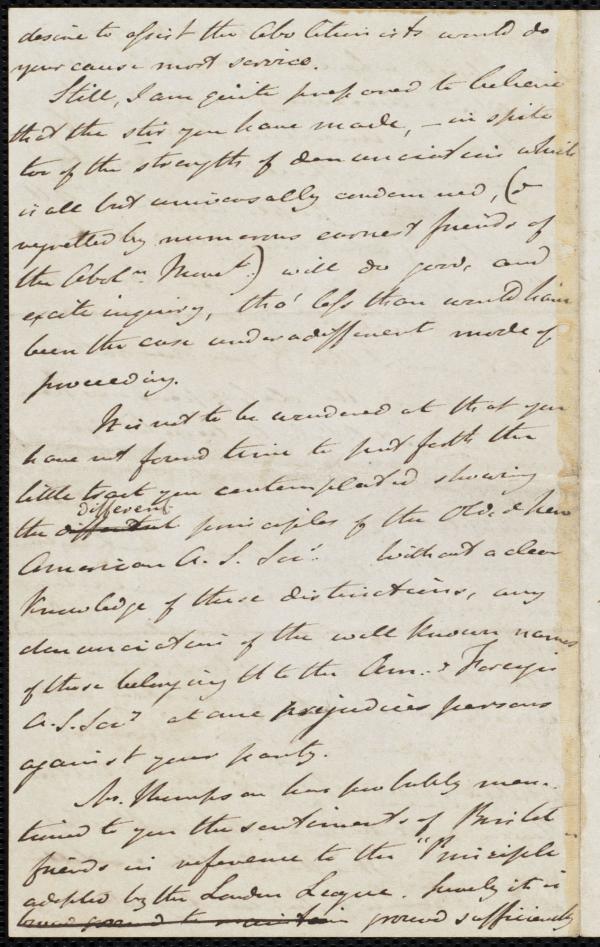 desire to assist the Abolitionists would do
your cause most service.
Still, I am quite prepared to believe
that the stir you have made, – in spite
too of the strength of denunciations which
is all but universally condemned, (&
regretted by numerous earnest friends of
the Aboln. Movet.) will do good, and
excite inquiry, tho' less than would have
been the case under a different mode of
proceeding.
It is not to be wondered at that you
have not found time to put forth the
little tract you contemplated showing
different
the principles of the Old & New
American A. S. Socs. Without a clear
knowledge of these distinctions, any
denunciations of the well known names
of those belonging to the Am. & Foreign
A. S. Socy at once prejudices persons
against your party.
Mr. Thompson has probably men-
tioned to you the sentiments of Bristol
friends in reference to the "Principle"
adopted by the London League. Surely it is
broad ground to maintain ground sufficiently